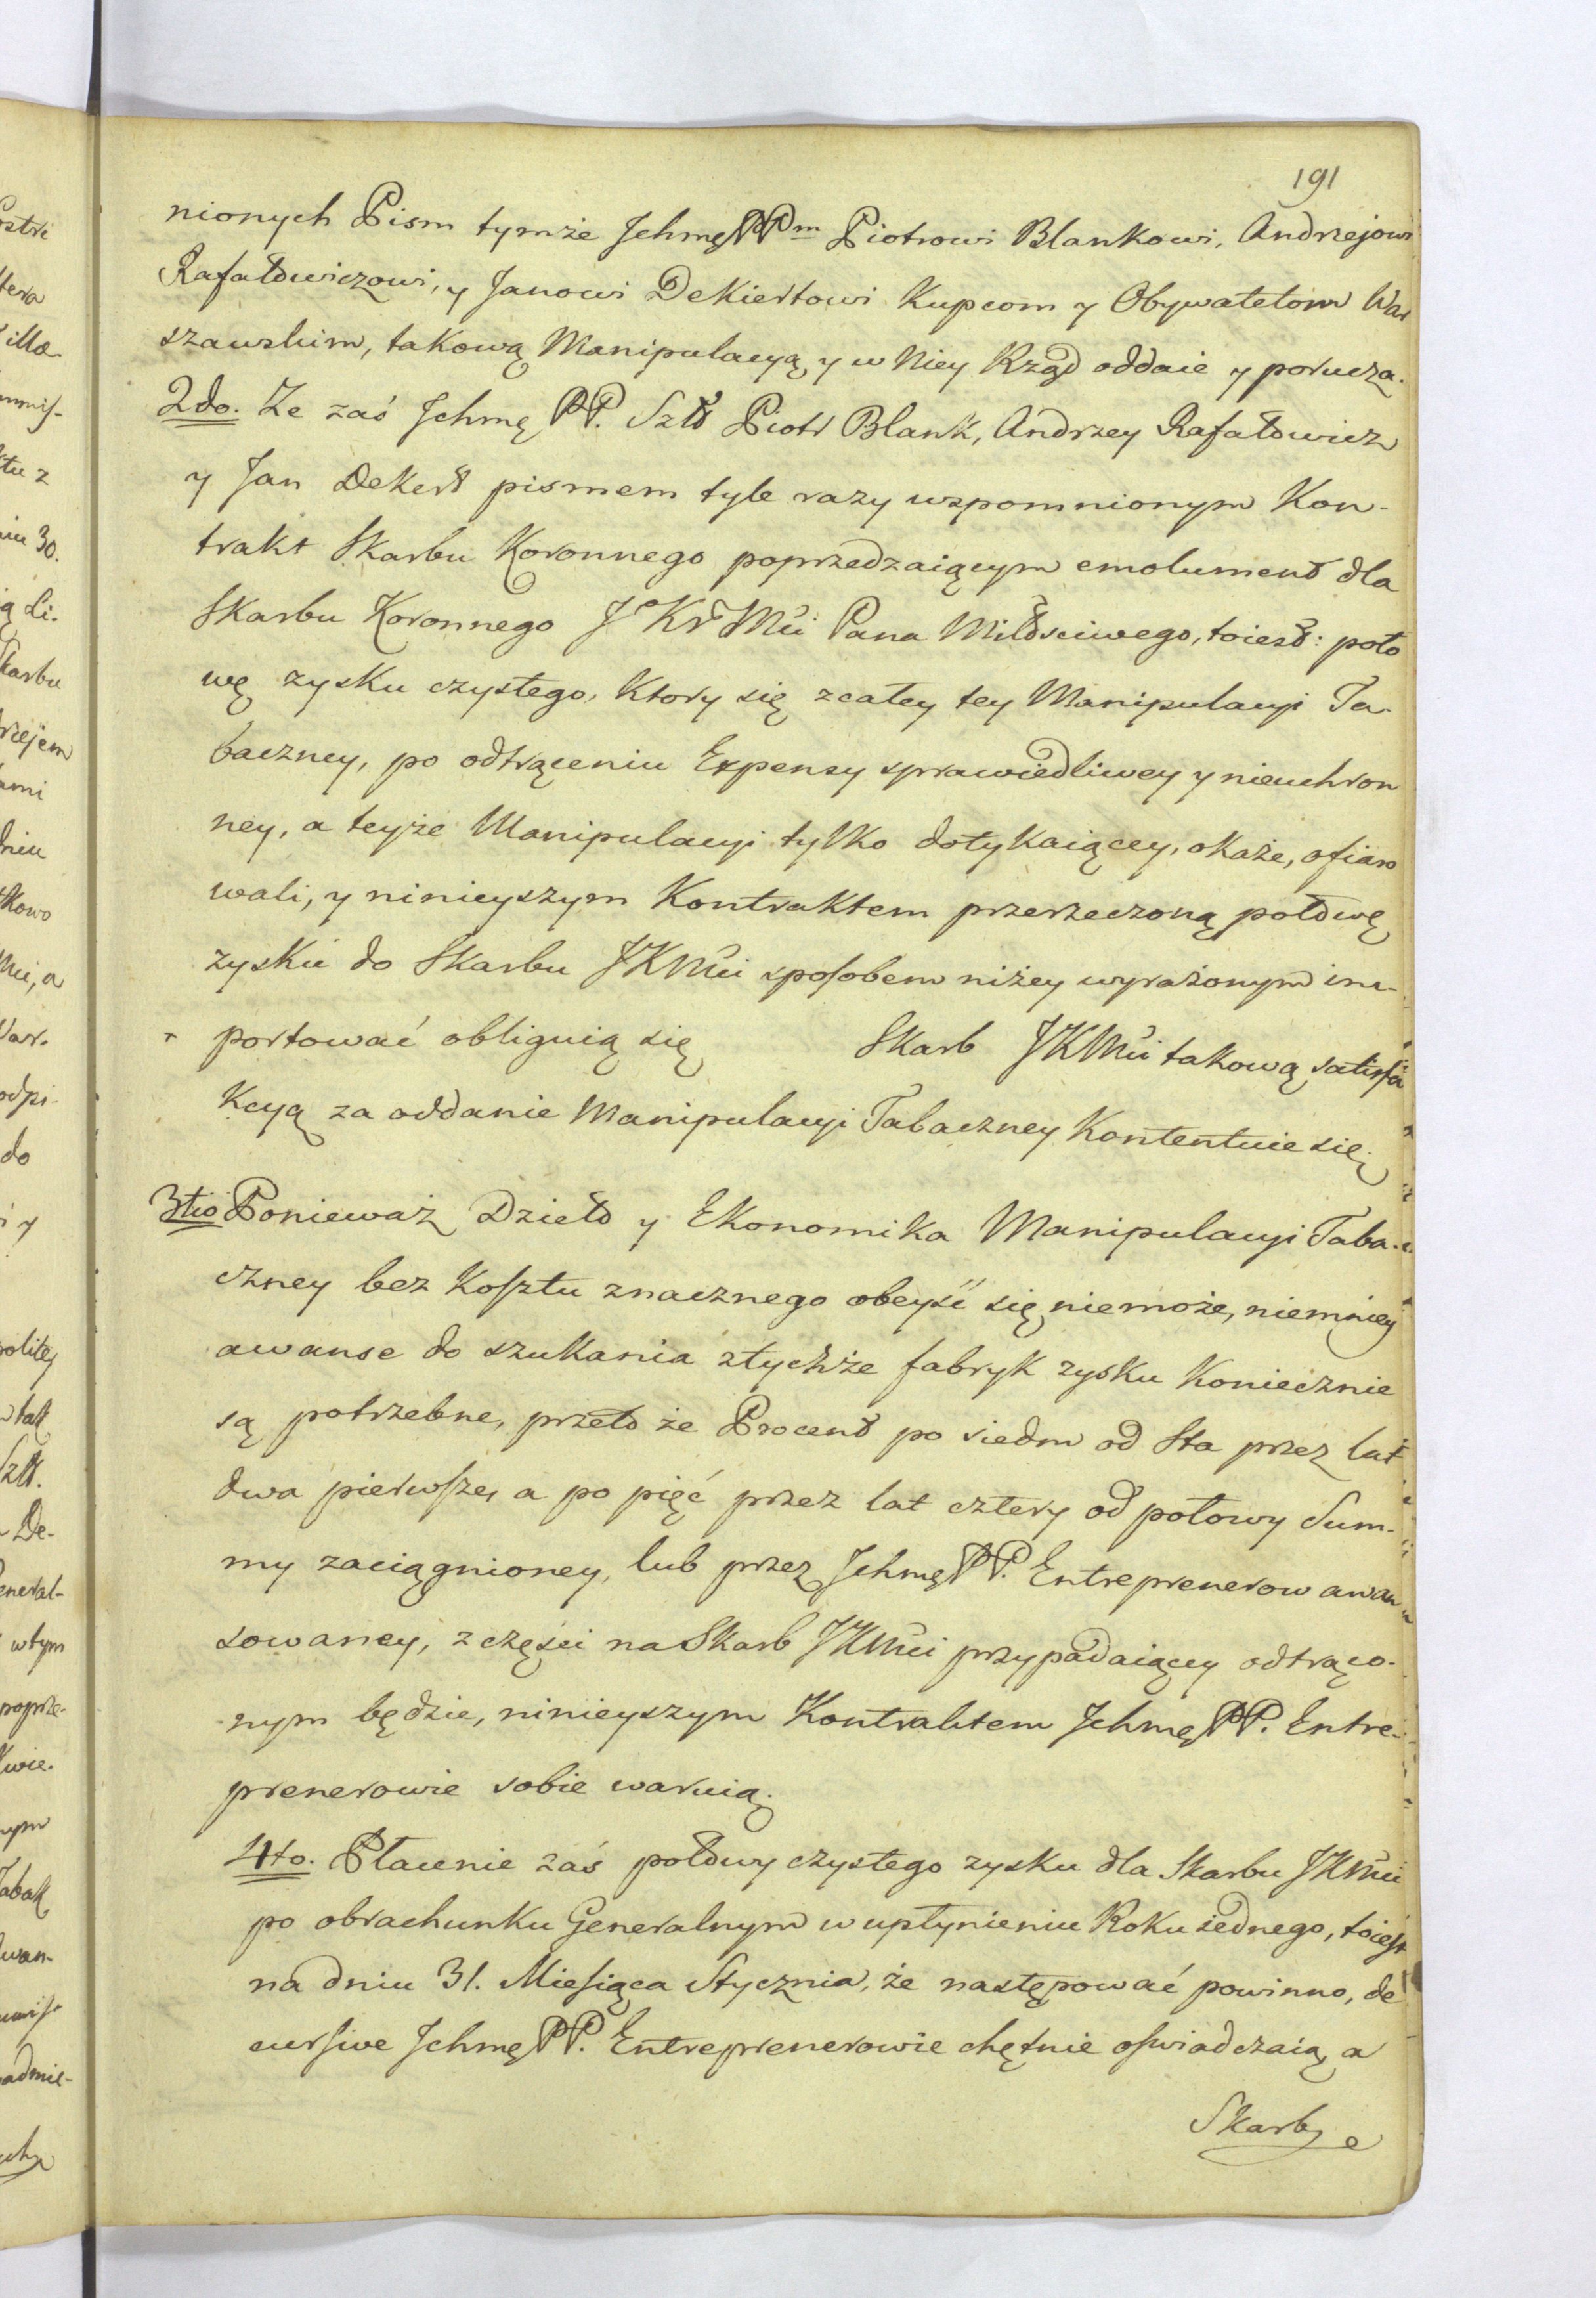 191
nionych Pism tymże Jchmę PPm Piotrowi Blankowi, Andrzejowi
Rafałowiczowi, y Janowi Dekiertowi Kupcom y Obywatelom War
szawskim, takową Manipulacyą y w Niey Rząd oddaie y porucza.
2do. Ze zaś Jchmę PP. Szłt Piotr Blank, Andrzey Rafałowicz
y Jan Dekert pismem tyle razy wspomnionym Kon-
trakt Skarbu Koronnego poprzedzaiącym emolument dla
Skarbu Koronnego J Kr Mci Pana Miłościwego, toiest: poło
wę zysku czystego, Ktory się zcałey tey Manipulacyi Ta-
baczney, po odtrąceniu Expensy sprawiedliwey y nieuchron
ney, a teyże Manipulacyi tylko dotykaiącey, okaże, ofiaro
wali, y ninieyszym Kontraktem przerzeczoną połowę
zysku do Skarbu JKMci sposobem niżey wyrażonym im-
portować obliguią się Skarb JKMci takową satisfa
kcyą za oddanie Manipulacyi Tabaczney Kontentuie się.
3tio Ponieważ Dzieło y Ekonomika Manipulacyi Taba-
czney bez Kosztu znacznego obeyść się niemoże, niemniey
awanse do szukania ztychże fabryk zysku Koniecznie
są potrzebne, przeto że Procent po siedm od Sta przez lat
dwa pierwsze, a po pięć przez lat cztery od połowy Sum-
my zaciągnioney, lub przez Jchmę PP. Entreprenerow awan
sowaney, z części na Skarb JKMci przypadaiącey odtrąco-
nym będzie, ninieyszym Kontraktem Jchmę PP. Entre-
prenerowie sobie waruią.
4to. Płacenie zaś połowy czystego zysku dla Skarbu JKMci
po obrachunku Generalnym w upłynieniu Roku iednego, toiest
na dniu 31. Miesiąca Stycznia, że następować powinno, de
cursive Jchmę PP. Entreprenerowie chętnie oświadczaią, a
Skarb